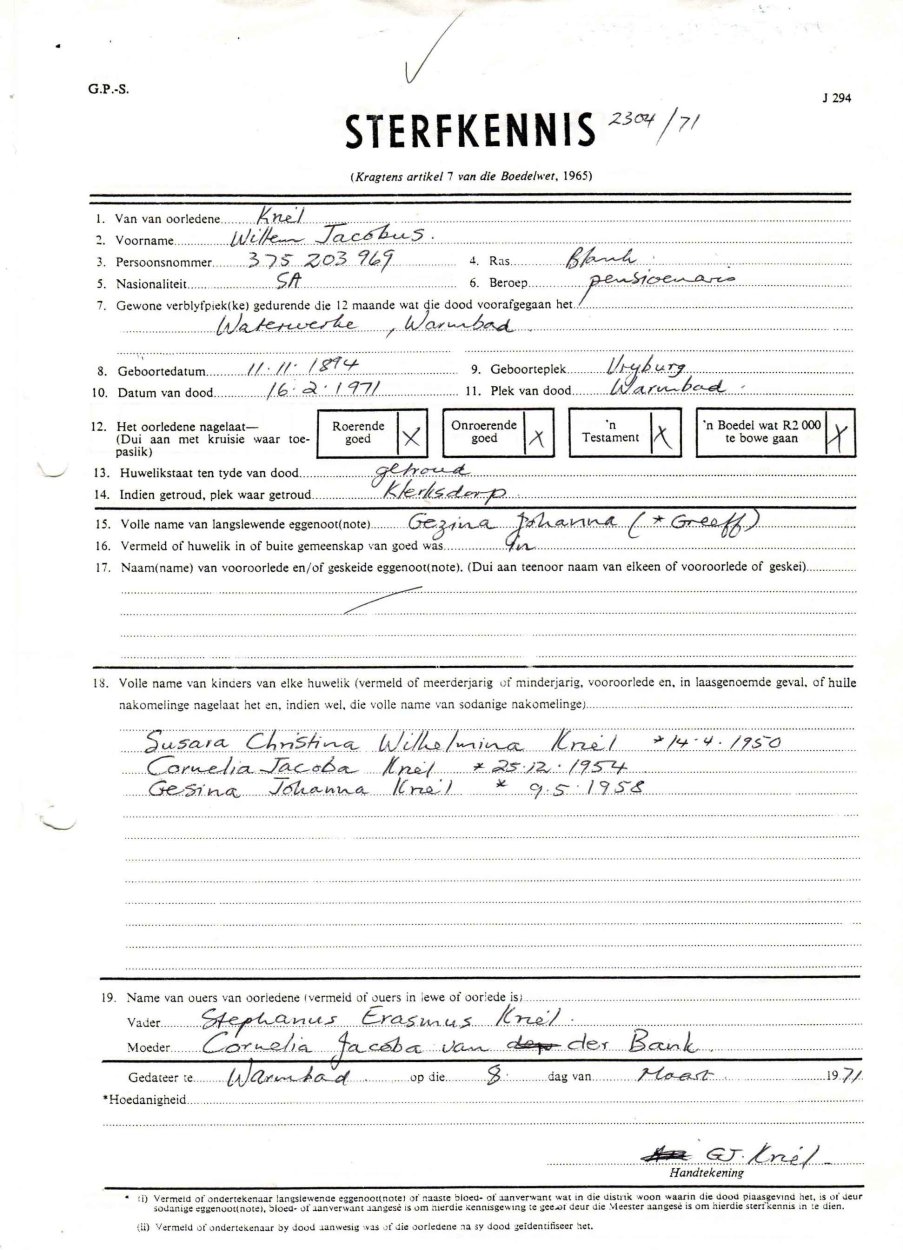 G.P.-S.
J 294
STERFKENNIS 2304/71
(Kragtens artikel 7 van die Boedelwet, 1965)
1. Van van oorledene Kriel
2. Voorname Willem Jacobus.
3. Persoonsnommer 375 203 969 4. Ras Blank
5. Nasionaliteit SA 6. Beroep pensioenaris
7. Gewone verblyfplek(ke) gedurende die 12 maande wat die dood voorafgegaan het
Waterwerke, Warmbad
8. Geboortedatum 11·11·1894 9. Geboorteplek Vryburg
10. Datum van dood 16·2·1971 11. Plek van dood Warmbad.
12. Het oorledene nagelaat—
(Dui aan met kruisie waar toe-
paslik)
Roerende goed X
Onroerende goed X
'n Testament X
'n Boedel wat R2 000 te bowe gaan X
13. Huwelikstaat ten tyde van dood getroud
14. Indien getroud, plek waar getroud Klerksdorp
15. Volle name van langslewende eggenoot(note) Gezina Johanna (* Greeff)
16. Vermeld of huwelik in of buite gemeenskap van goed was In
17. Naam(name) van vooroorlede en/of geskeide eggenoot(note). (Dui aan teenoor naam van elkeen of vooroorlede of geskei)
18. Volle name van kinders van elke huwelik (vermeld of meerderjarig of minderjarig, vooroorlede en, in laasgenoemde geval, of hulle
nakomelinge nagelaat het en, indien wel, die volle name van sodanige nakomelinge)
Susara Christina Wilhelmina Kriel *14·4·1950
Cornelia Jacoba Kriel * 25·12·1954
Gesina Johanna Kriel * 9·5·1958
19. Name van ouers van oorledene (vermeld of ouers in lewe of oorlede is)
Vader Stephanus Erasmus Kriel.
Moeder Cornelia Jacoba van der Bank
Gedateer te Warmbad op die 8 dag van Maart 1971
*Hoedanigheid
GJ. Kriel
Handtekening
* (i) Vermeld of ondertekenaar langslewende eggenoot(note) of naaste bloed- of aanverwant wat in die distrik woon waarin die dood plaasgevind het, is of deur
eggenoot(note), bloed- of aanverwant aangesê is om hierdie kennisgewing te gee of deur die Meester aangesê is om hierdie sterfkennis in te dien.
(ii) Vermeld of ondertekenaar by dood aanwesig was of die oorledene na sy dood geïdentifiseer het.